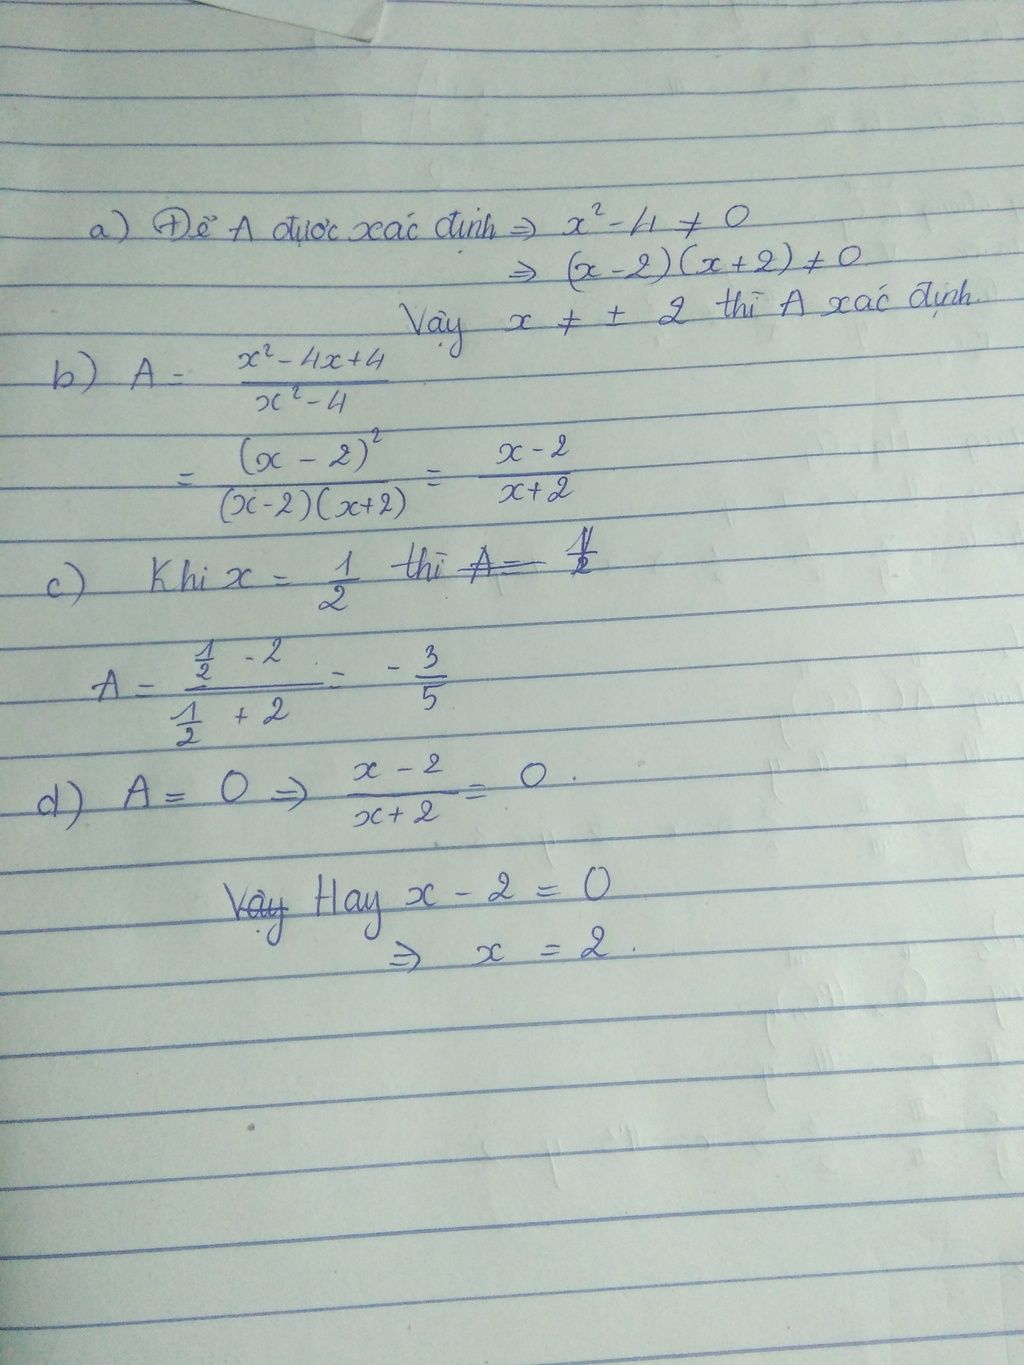 a) Để A được xác định ⇒ x² - 4 ≠ 0
⇒ (x - 2)(x + 2) ≠ 0
Vậy x ≠ ± 2 thì A xác định.
b) A = (x² - 4x + 4)/(x² - 4)
= (x - 2)²/((x - 2)(x + 2)) = (x - 2)/(x + 2)
c) Khi x = 1/2 thì A =
A = (1/2 - 2)/(1/2 + 2) = - 3/5
d) A = 0 ⇒ (x - 2)/(x + 2) = 0.
Vậy Hay x - 2 = 0
⇒ x = 2.